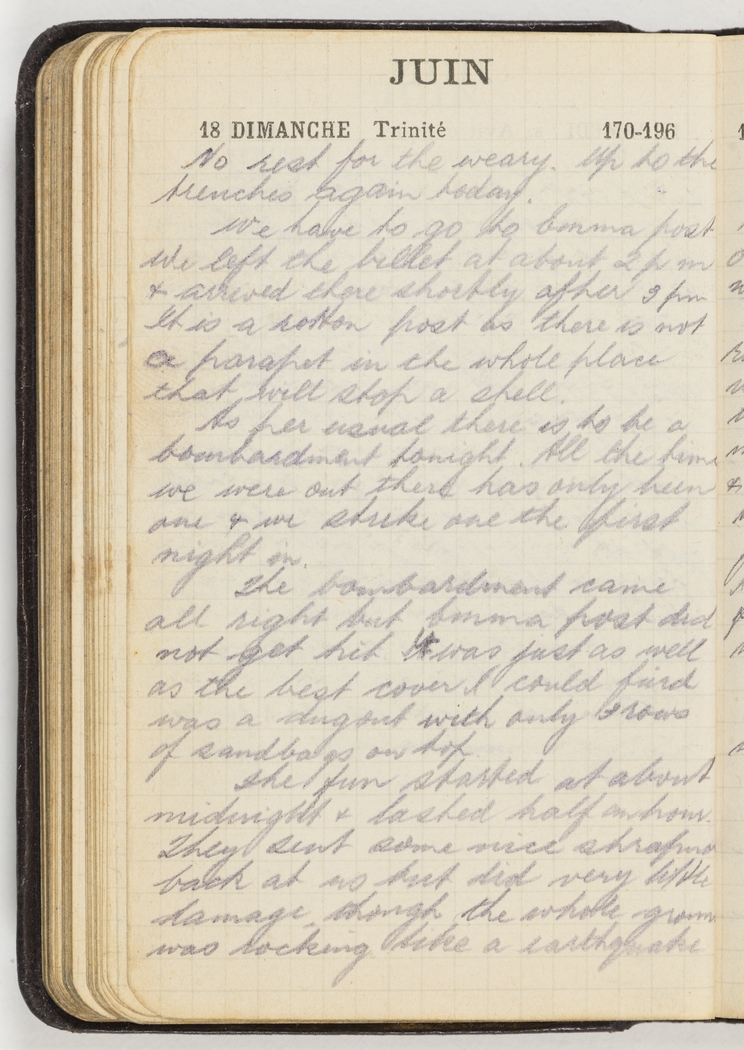 JUIN
18 DIMANCHE Trinité 170-196
No rest for the weary. Up to the
trenches again today.
We have to go to Emma post
We left the billet at about 2 p m
& arrived there shortly after 3 pm
It is a rotton post as there is not
a parapet in the whole place
that will stop a shell.
As per usual there is to be a
bombardment tonight. All the time
we were out there has only been
one & we strike one the first
night in.
The bombardment came
all right but Emma post did
not get hit It was just as well
as the best cover I could find
was a dugout with only 2 rows
of sandbags on top
The fun started at about
midnight & lasted half an hour.
They sent some nice shrapn
back at us but did very little
damage, though the whole groun
was rocking like a earthquake